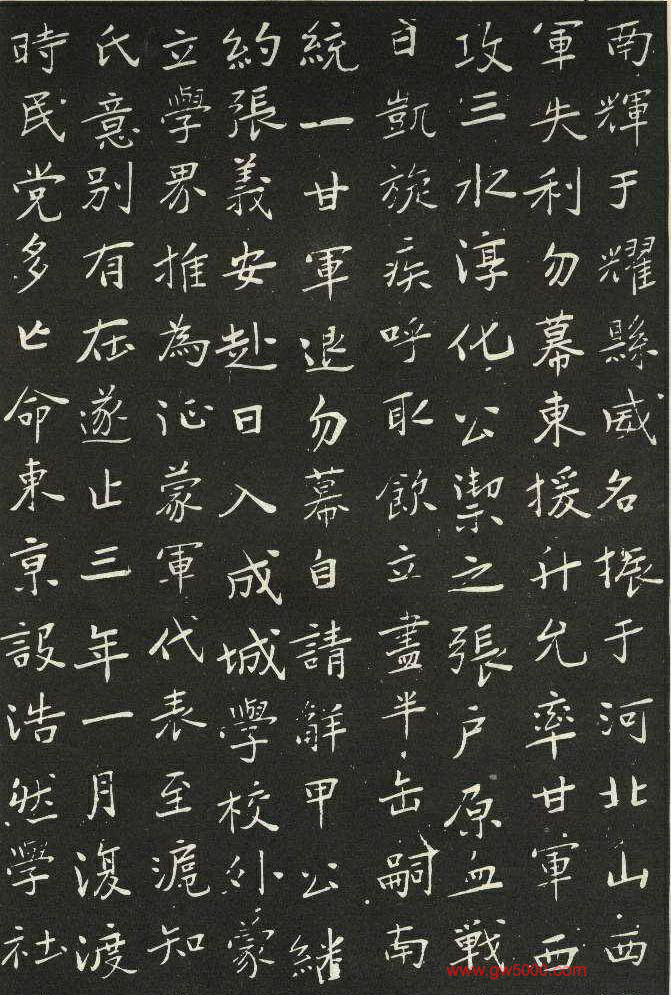 南輝于耀縣威名振于河北山西
軍失利勿幕東援升允率甘軍西
攻三水淳化公禦之張户原血戰
日凱旋疾呼取飲立盡半缶嗣南
統一甘軍退勿幕自請觧甲公繼
約張義安赴日入成城學校外蒙
立學界推為征蒙軍代表至滬知
氏意别有在遂止三年一月復渡
時民党多亡命東京設浩然學社
www.gw5000.com